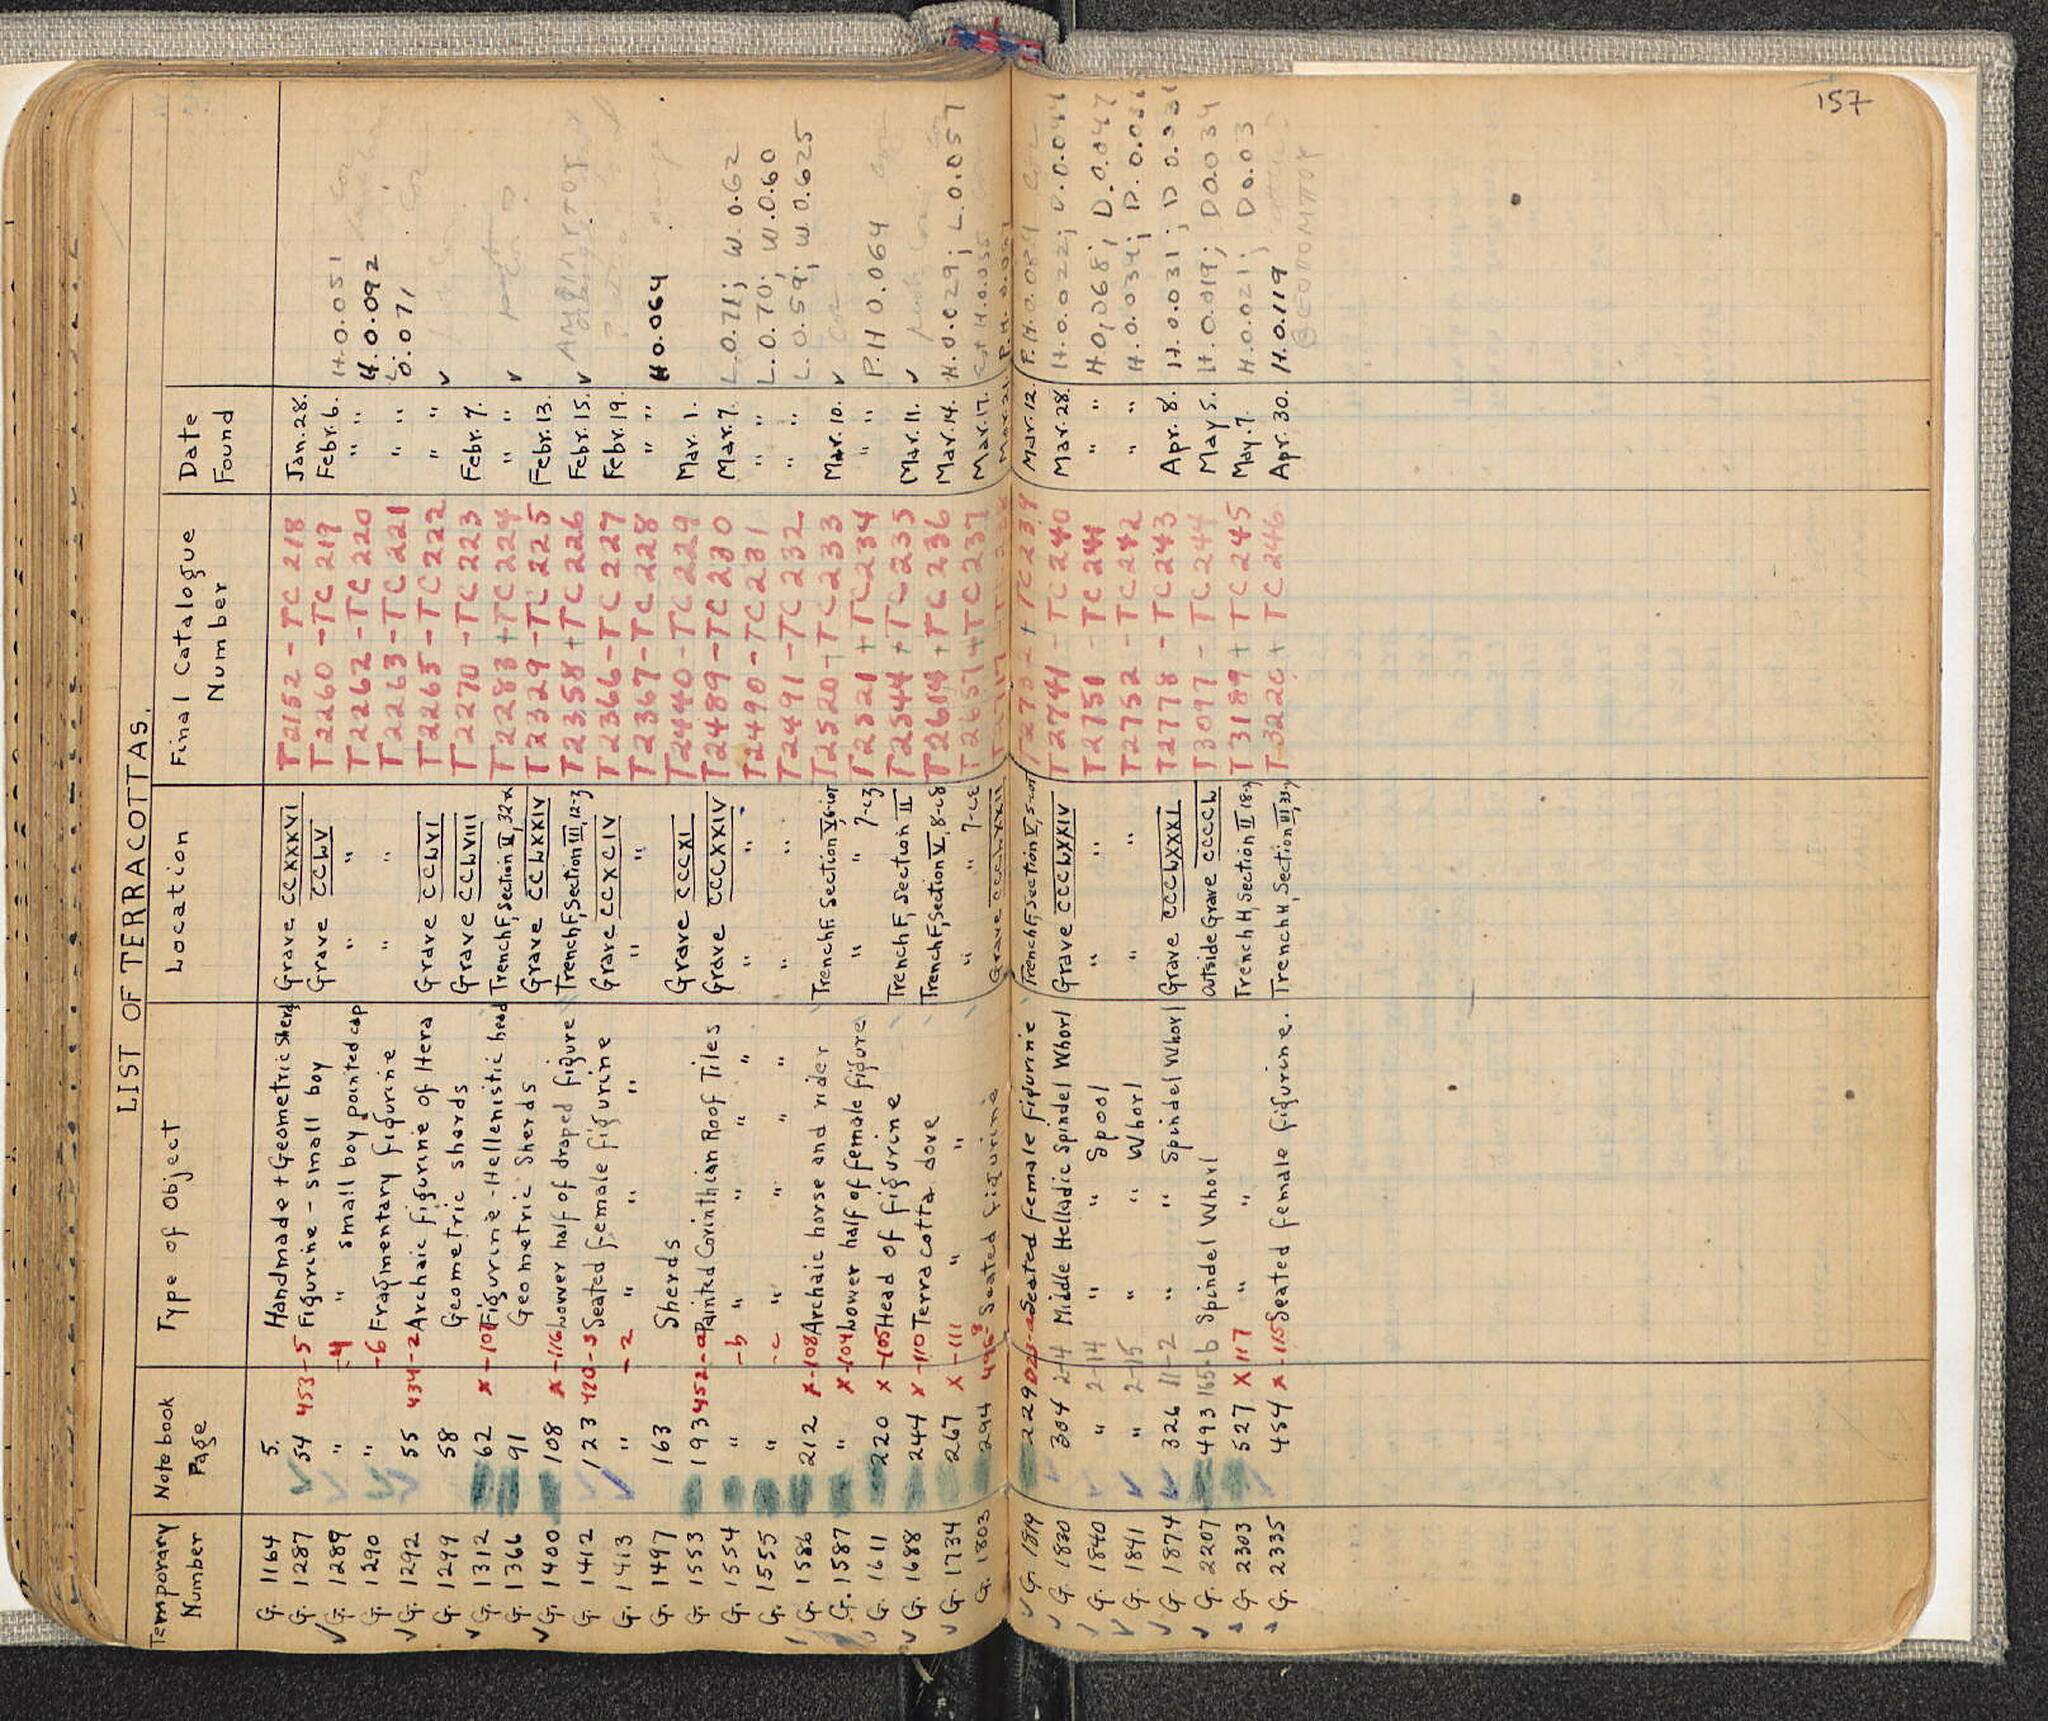 157
LIST OF TERRACOTTAS.
Temporary Number Notebook Page Type of Object Location Final Catalogue Number Date Found
G. 1164 5. Handmade + Geometric Sherds Grave CCXXXVI T2152 - TC 218 Jan. 28.
G. 1287 54 453-5 Figurine - small boy Grave CCLV T2260 - TC 219 Febr. 6. H. 0.051
√ G. 1289 " -4 " small boy pointed cap " " T2262 - TC 220 " " H. 0.092
G. 1290 " -6 Fragmentary figurine " " T2263 - TC 221 " " 0.071
√ G. 1292 55 434-2 Archaic figurine of Hera Grave CCLVI T2265 - TC 222 " " √
G. 1299 58 Geometric sherds Grave CCLVIII T2270 - TC 223 Febr. 7.
√ G. 1312 62 X-101 Figurine - Hellenistic head Trench F, Section II, 32 T2283 + TC 224 " " √
G. 1366 91 Geometric Sherds Grave CCLXXIV T2329 - TC 225 Febr. 13.
√ G. 1400 108 X-116 Lower half of draped figure Trench F, Section III, 12-3 T2358 + TC 226 Febr. 15. √
G. 1412 123 420-3 Seated female figurine Grave CCXCIV T2366 - TC 227 Febr. 19.
G. 1413 " -2 " " " " " T2367 - TC 228 " " H 0.064
G. 1497 163 Sherds Grave CCCXI T2440 - TC 229 Mar. 1.
G. 1553 193 452-a Painted Corinthian Roof Tiles Grave CCCXXIV T2489 - TC 230 Mar. 7. L. 0.71; W. 0.62
G. 1554 " -b " " " " " " T2490 - TC 231 " " L. 0.70; W. 0.60
G. 1555 " -c " " " " " " T2491 - TC 232 " " L 0.59; W 0.625
G. 1586 212 X-108 Archaic horse and rider Trench F. Section V, T2520 + TC 233 Mar. 10. √
G. 1587 " X-104 Lower half of female figure " " T2521 + TC 234 " " P.H 0.064
G. 1611 220 X-105 Head of figurine Trench F, Section II T2544 + TC 235 Mar. 11. √
√ G. 1688 244 X-110 Terracotta dove Trench F, Section V, T2614 + TC 236 Mar. 14. H. 0.029; L. 0.057
√ G. 1734 267 X-111 " " " " T2657 + TC 237 Mar. 17.
G. 1803 294 Seated figurine Grave Mar. 21
√ G. 1819 229 Seated female figurine Trench F, Section V, T2732 + TC 239 Mar. 12. P.H. 0.084
√ G. 1830 304 2-4 Middle Helladic Spindel Whorl Grave CCCLXXIV T2741 - TC 240 Mar. 28. H. 0.022; D. 0.044
√ G. 1840 " 2-14 " " Spool " " T2751 - TC 241 " " H. 0,068; D. 0.047
√ G. 1841 " 2-15 " " Whorl " " T2752 - TC 242 " " H. 0.034;
√ G. 1874 326 11-2 " " Spindel Whorl Grave CCCLXXXI T2778 - TC 243 Apr. 8. H. 0.031; D 0.031
√ G. 2207 493 165-b Spindel Whorl outside Grave CCCCL T3097 - TC 244 May 5. H. 0.019; D 0.034
G. 2303 527 X 117 " " Trench H, Section II 18-3 T3189 + TC 245 May. 7. H. 0.021; D 0.03
G. 2335 454 X-115 Seated female figurine. Trench H, Section III, T3220 + TC 246 Apr. 30. H. 0.119